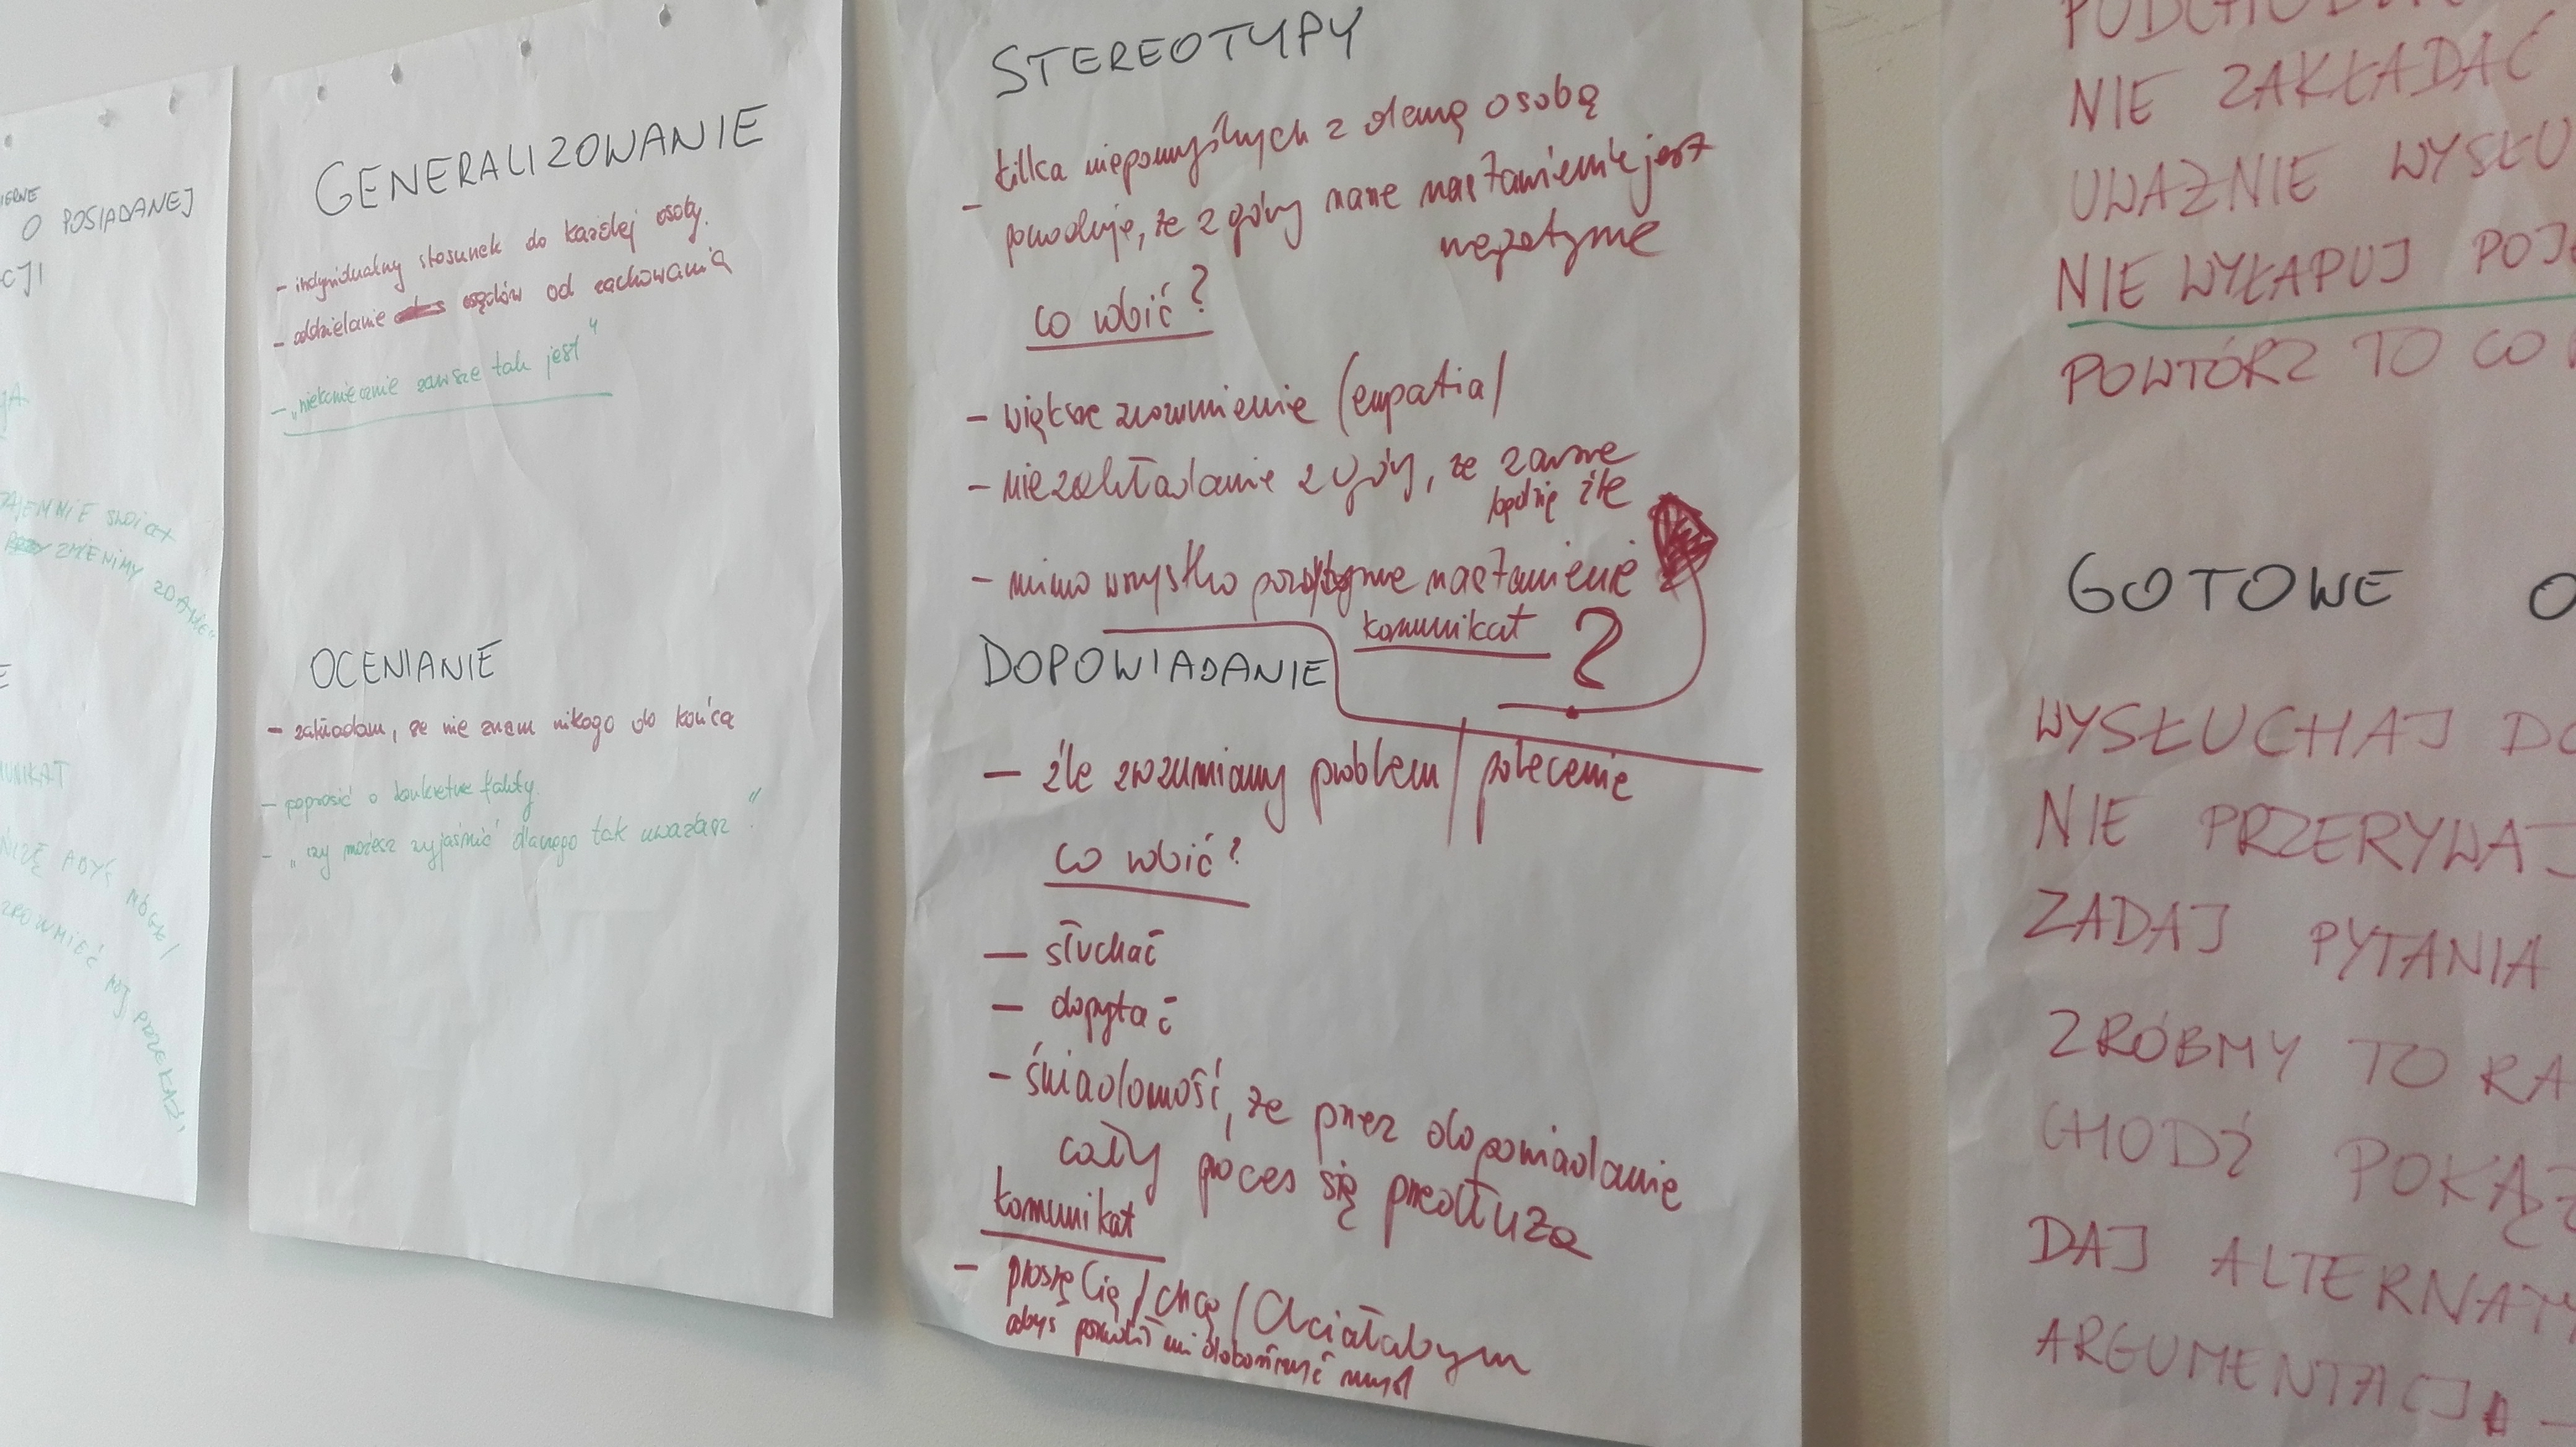 O POSIADANEJ
CJI
ZMIENIMY ZDANIE"
ABYŚ MÓGŁ/
MÓJ PRZEKAZ"
GENERALIZOWANIE
- indywidualny stosunek do każdej osoby.
- oddzielanie osądów od zachowania
- "niekoniecznie zawsze tak jest"
OCENIANIE
- zakładam, że nie znam nikogo do końca
- poprosić o konkretne fakty.
- "czy możesz wyjaśnić dlaczego tak uważasz"
STEREOTYPY
- kilka niepomyślnych z daną osobą
powoduje, że z góry nasze nastawienie jest
negatywne
co robić?
- większe zrozumienie (empatia/
- nie zakładanie z góry, że zawsze
będzie źle
- mimo wszystko pozytywne nastawienie
komunikat ?
DOPOWIADANIE
- źle zrozumiany problem / polecenie
co robić?
- słuchać
- dopytać
- świadomość, że przez dopowiadanie
cały proces się przedłuża
komunikat
- proszę Cię / chcę / Chciałabym
abyś pozwolił mi dokończyć myśl
NIE ZAKŁADAĆ
UWAŻNIE WYSŁU
NIE WYŁAPUJ POJ
POWTÓRZ TO CO
GOTOWE O
WYSŁUCHAJ DO
NIE PRZERYWAJ
ZADAJ PYTANIA
ZRÓBMY TO RA
CHODŹ POKĄŻ
DAJ ALTERNATY
ARGUMENTACJ